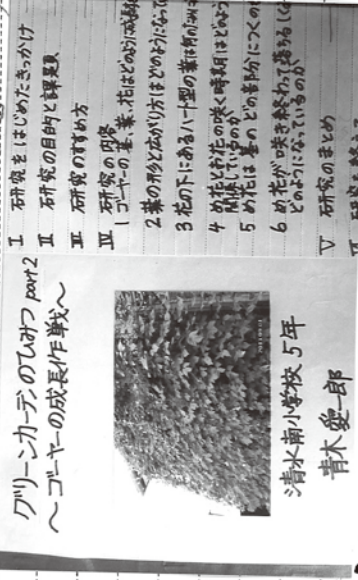 グリーンカーテンのひみつ part2
〜ゴーヤーの成長作戦〜
清水南小学校 5年
青木 愛一郎
I 研究をはじめたきっかけ
II 研究の目的と課題
III 研究のすすめ方
IV 研究の内容
1 ゴーヤーの茎、葉、花はどのように成長
2 葉の形と広がり方はどのようになって
3 花の下にあるハート型の葉は何のため
4 め花とお花の咲く時期はどのよう
関係しているのか
5 め花は茎のどの部分につくの
6 め花が咲き終わって落ちる
どのようになっているのか
V 研究のまとめ